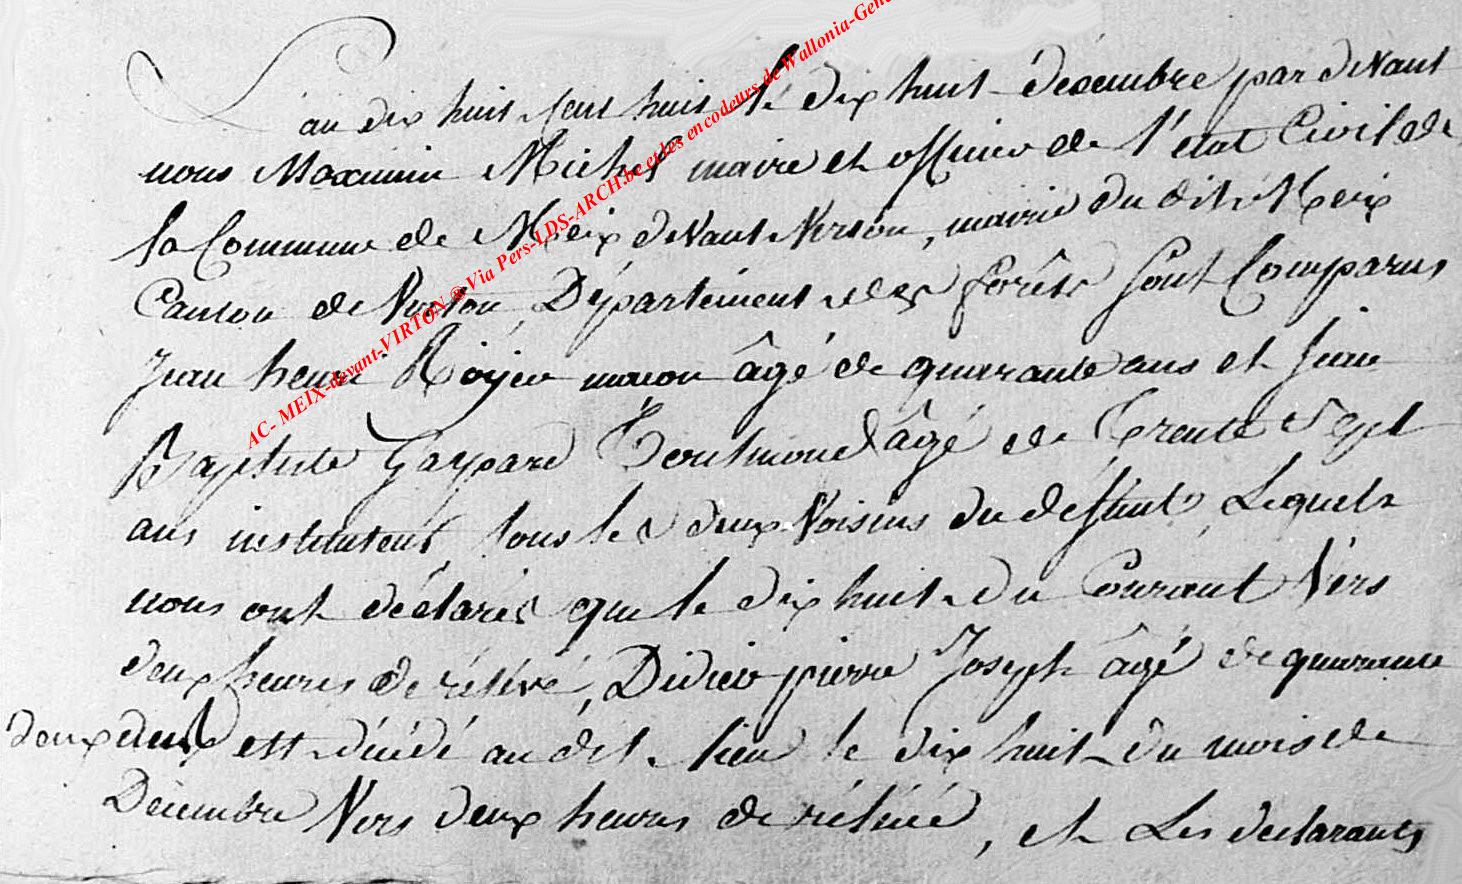 L'an dix huit cent huit le dix huit décembre par devant
nous Maximin Michel maire et officier de l'état Civil de
la Commune de Meix devant Virton, mairie du dit Meix
Canton de Virton Département des forêts sont Comparus
Jean henri macon âgé de quarante ans et Jean
Baptiste Gaspard âgé de Trente Sept
ans instituteur tous les deux Voisins du deffunt Lequels
nous ont déclarés que le dix huit du Courant Vers
deux heures de rélévé, Didier pierre Joseph âgé de quarante
deux ans est décédé au dit lieu le dix huit du mois de
Décembre Vers deux heures de rélévé, et Les déclarants
AC- MEIX-devant-VIRTON ® Via Pers-LDS-ARCH.be et les encodeurs de Wallonia-Gen